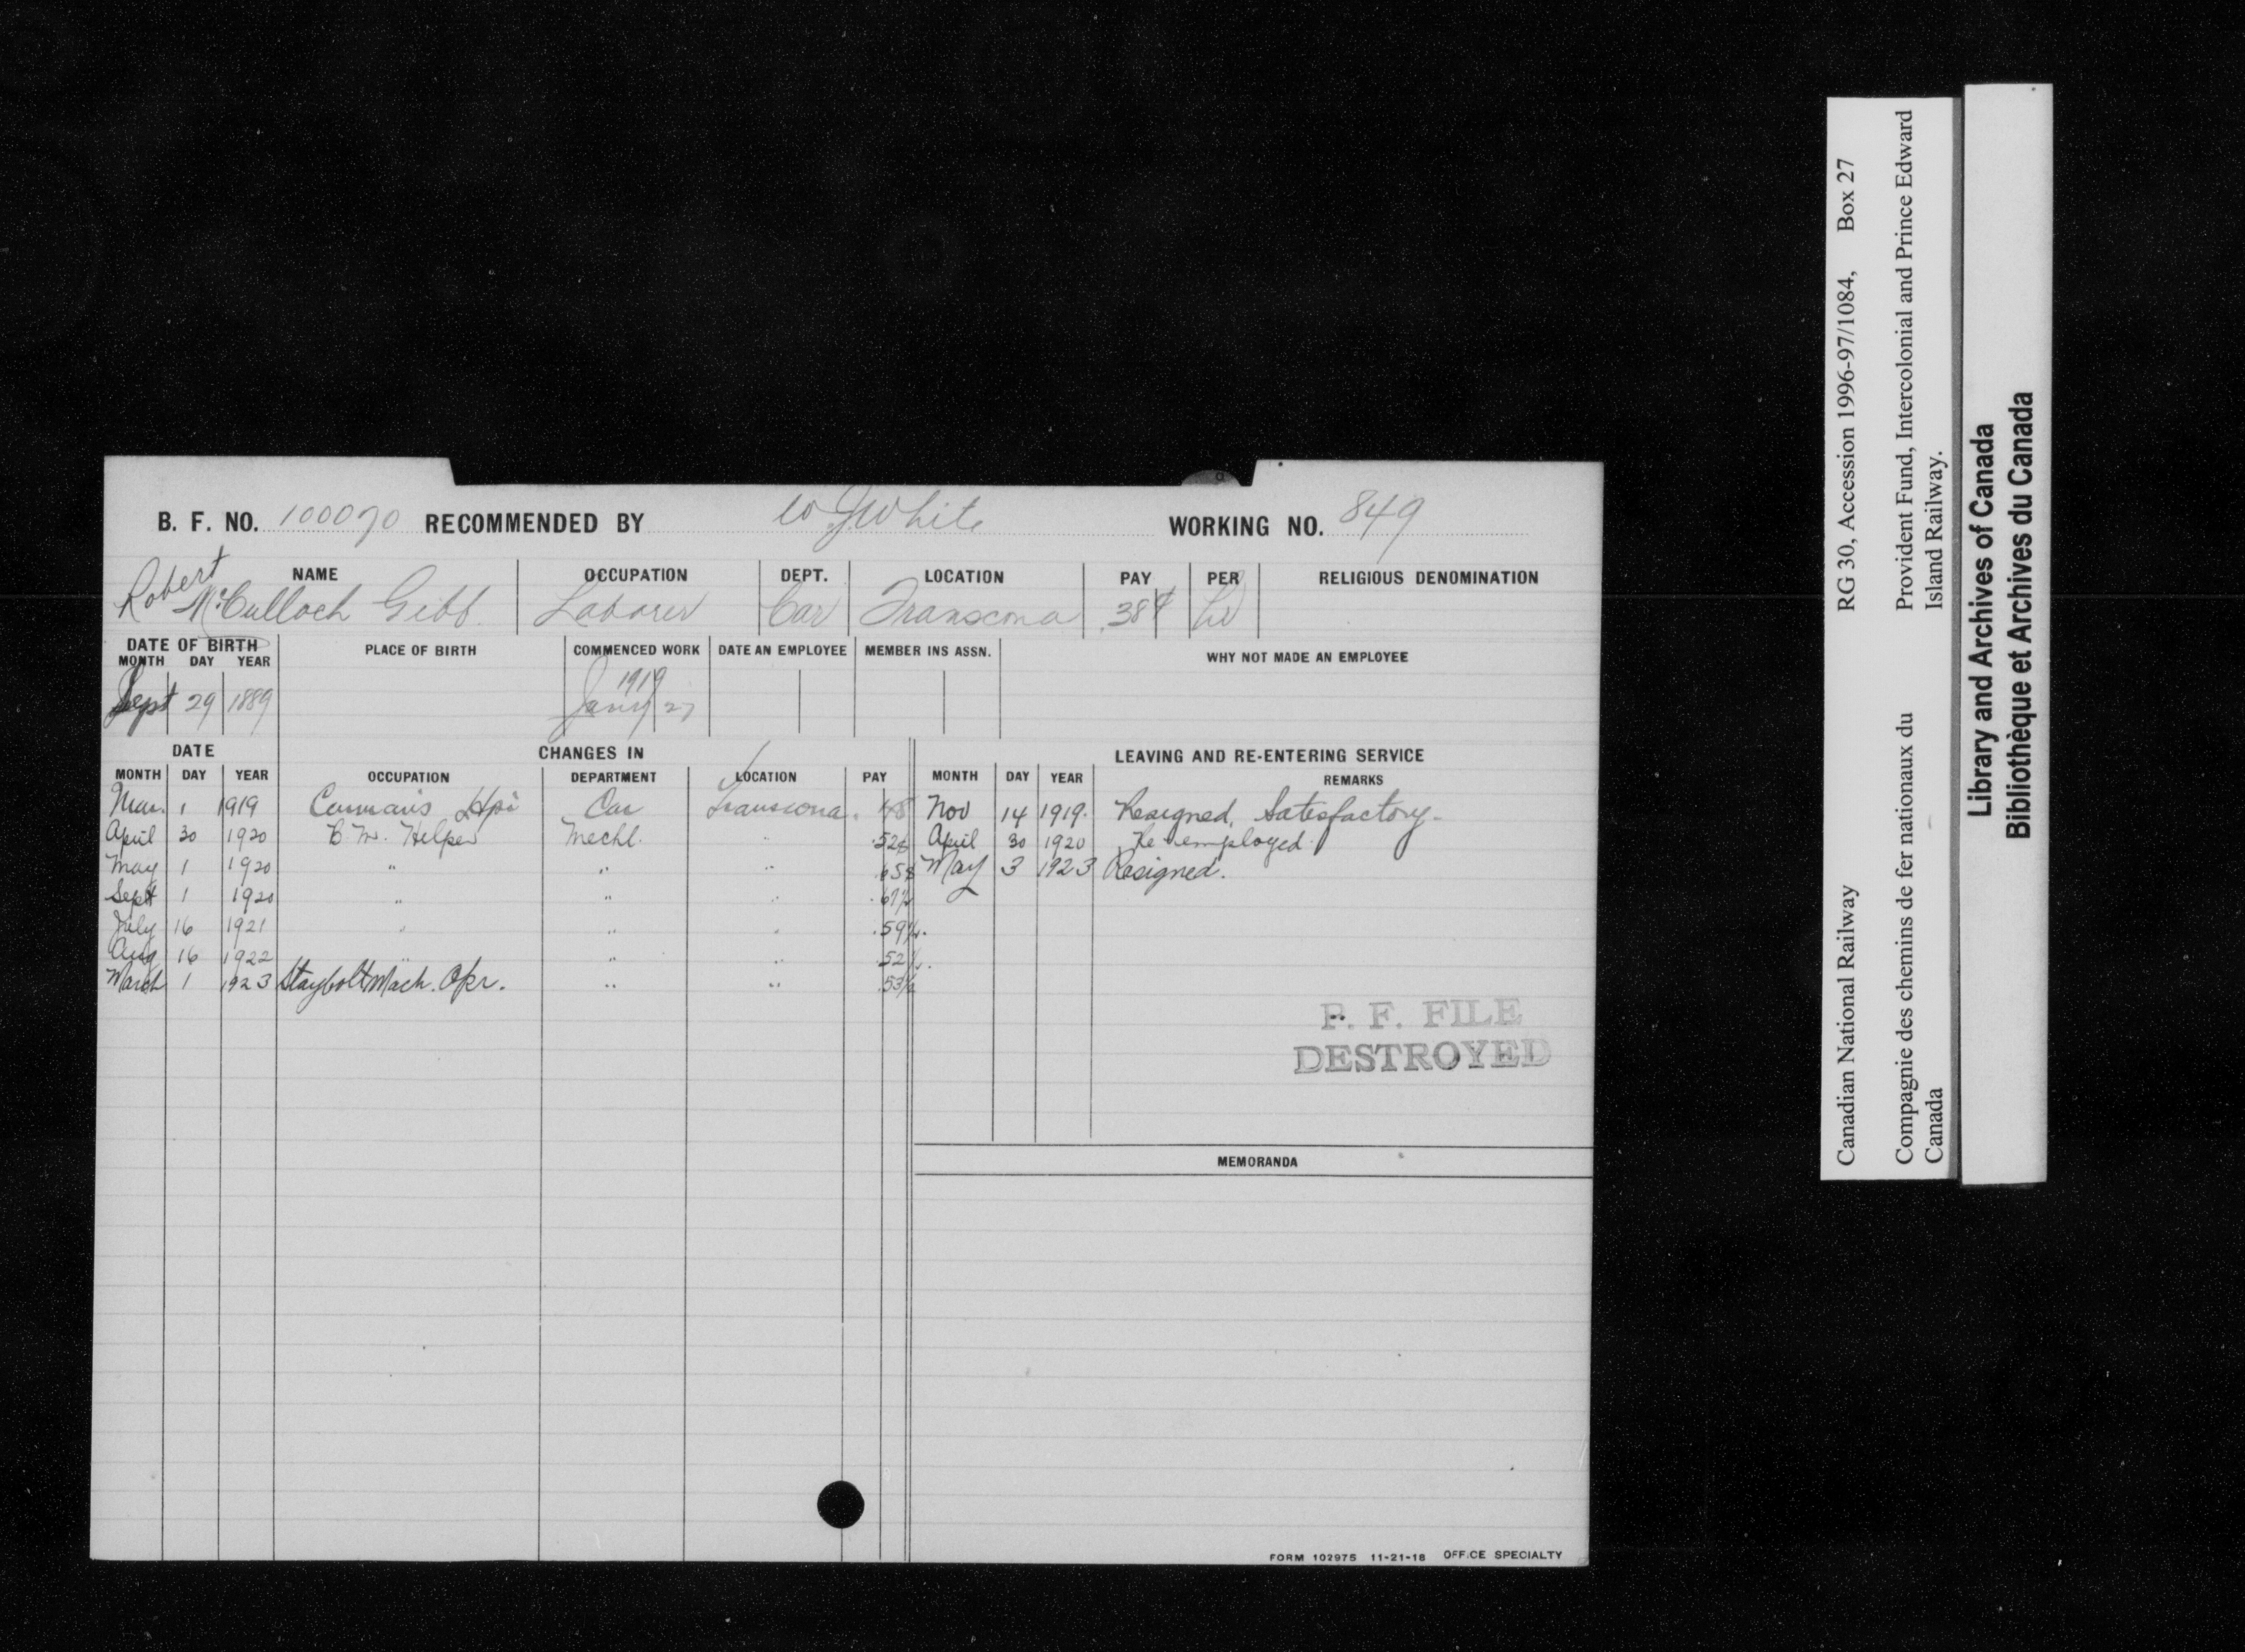 B. F. NO. 100070 RECOMMENDED BY W J White WORKING NO. 849
NAME OCCUPATION DEPT. LOCATION PAY PER RELIGIOUS DENOMINATION
Robert
McCulloch Gibb. Laborer Car Transcona .38¢ hr
DATE OF BIRTH PLACE OF BIRTH COMMENCED WORK DATE AN EMPLOYEE MEMBER INS ASSN. WHY NOT MADE AN EMPLOYEE
MONTH DAY YEAR
1919
Sept 29 1889 Jany 27
DATE CHANGES IN LEAVING AND RE-ENTERING SERVICE
MONTH DAY YEAR OCCUPATION DEPARTMENT LOCATION PAY MONTH DAY YEAR REMARKS
Mar. 1 1919 Carman's Hpr Car Transcona. 48 Nov 14 1919. Resigned, Satisfactory.
April 30 1920 B. M. Helper Mechl. " .52¢ April 30 1920 Re employed.
May 1 1920 " " " May 3 1923 Resigned.
Sept 1 1920 " " "
July 16 1921 " " " .59½.
Aug 16 1922 " " " .52½.
March 1 1923 Staybolt Mach. Opr. " " .53½
P. F. FILE
DESTROYED
MEMORANDA
FORM 102975 11-21-18 OFFICE SPECIALTY
Canadian National Railway RG 30, Accession 1996-97/1084, Box 27
Compagnie des chemins de fer nationaux du Canada
Provident Fund, Intercolonial and Prince Edward Island Railway.
Library and Archives of Canada
Bibliothèque et Archives du Canada